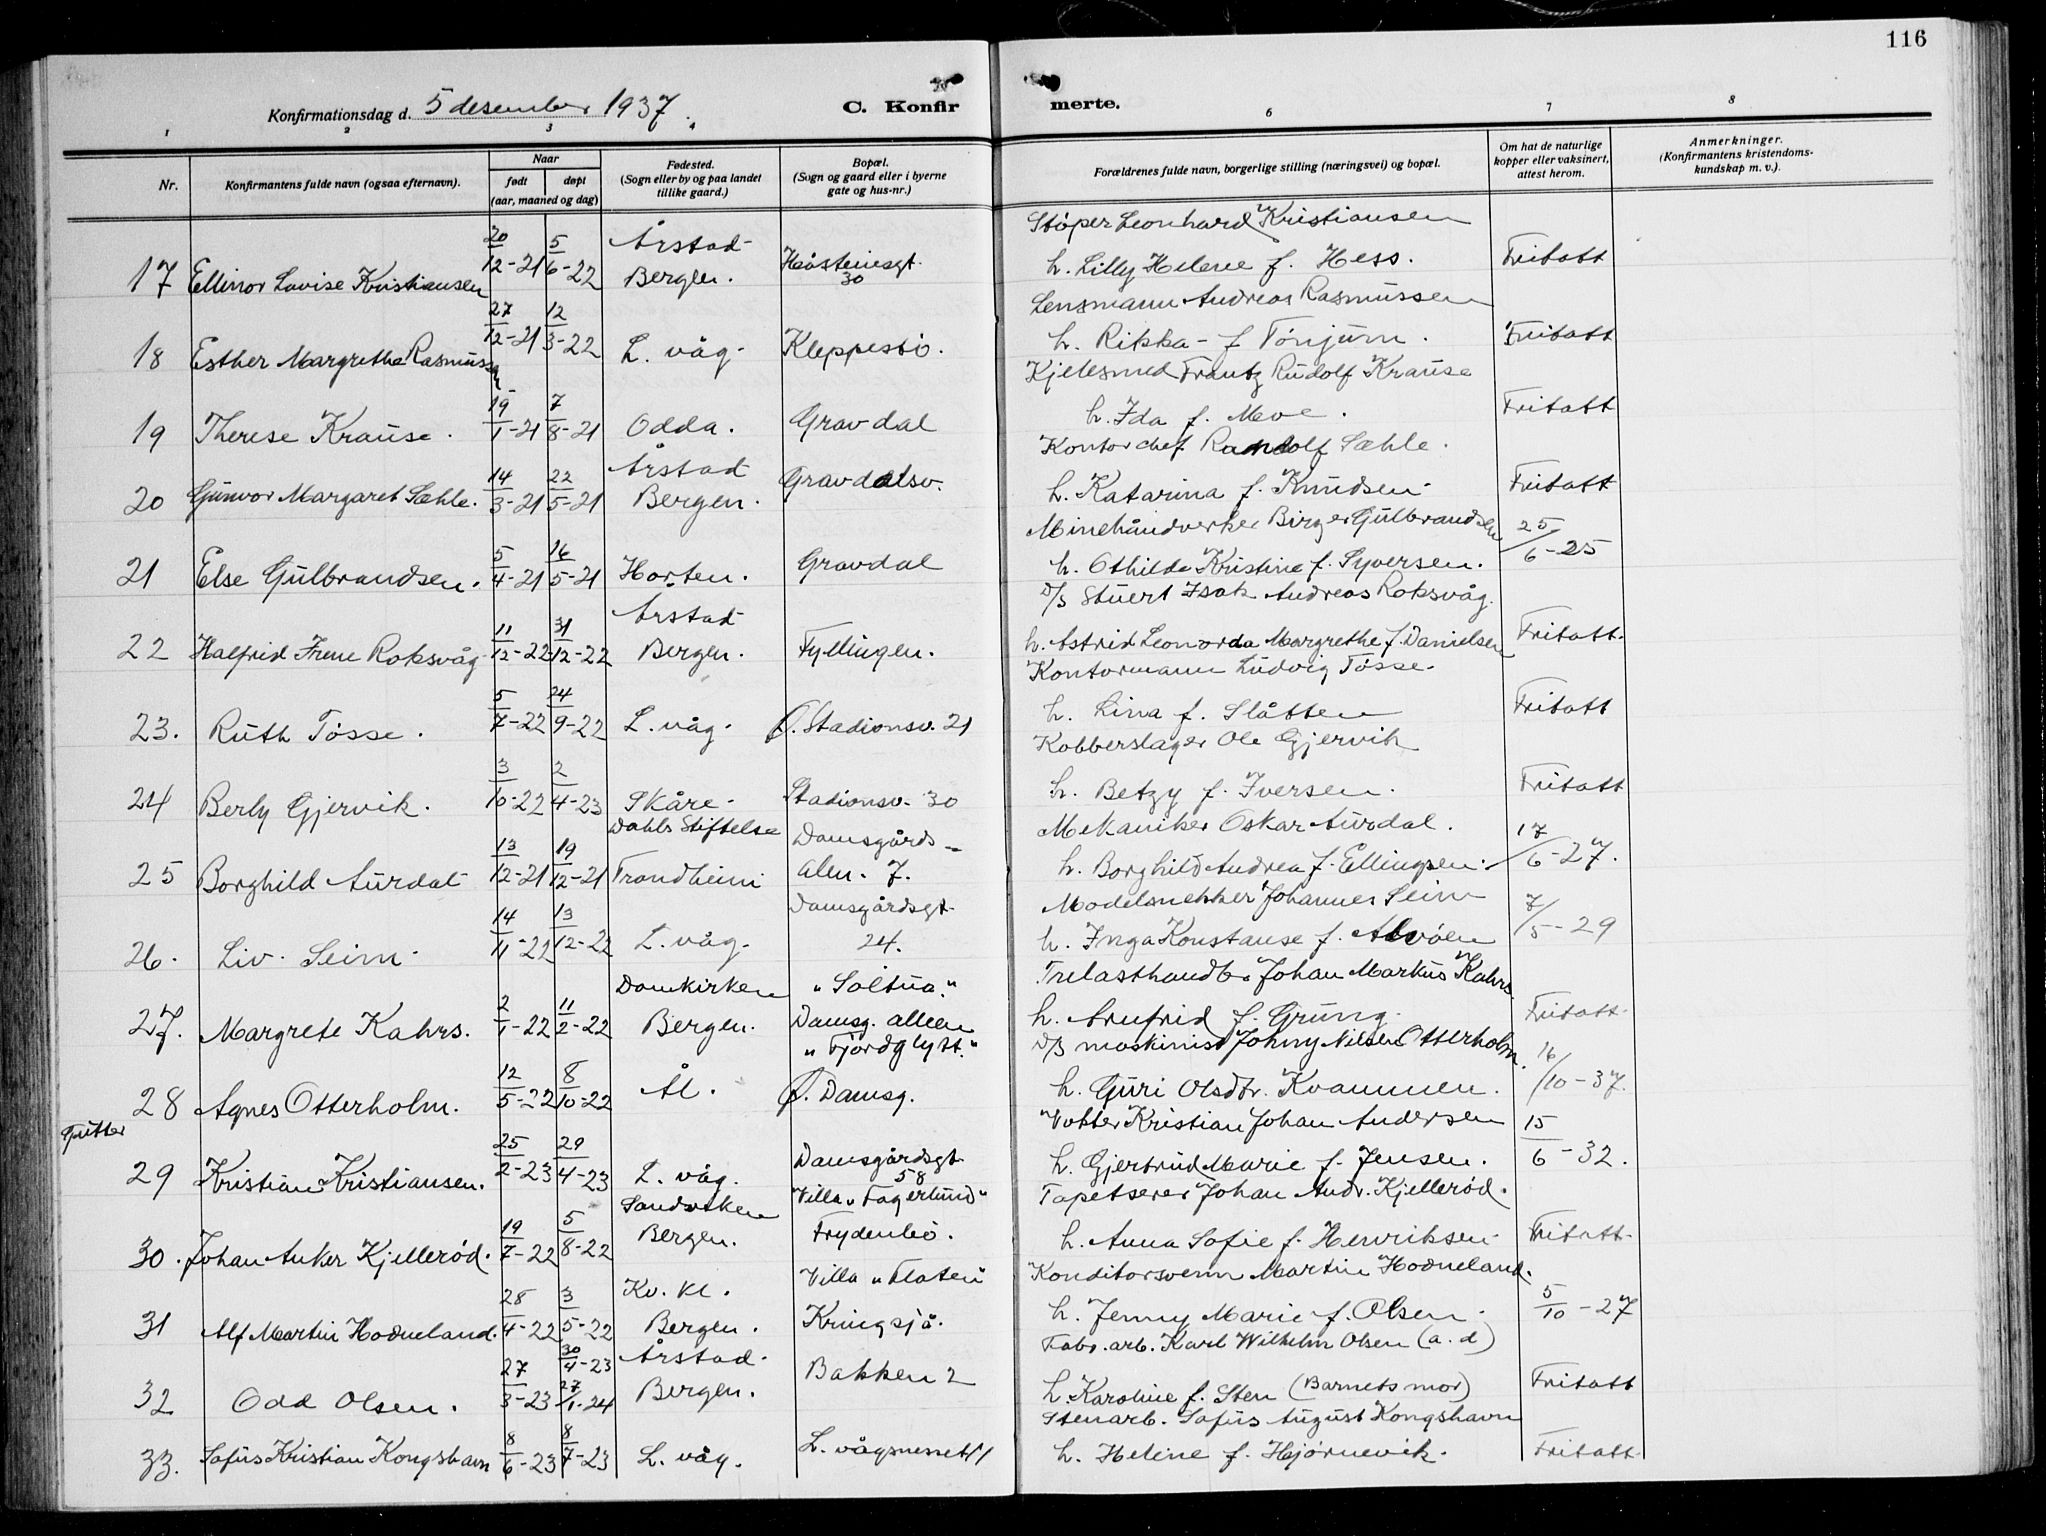 116
Konfirmationsdag d. 5 desember 1937.
C. Konfirmerte.
1 2 3 4 6 7 8
Nr.
Konfirmantens fulde navn (ogsaa efternavn).
Naar
født døpt
(aar, maaned og dag)
Fødested.
(Sogn eller by og paa landet
tillike gaard.)
Bopæl.
(Sogn og gaard eller i byerne
gate og hus-nr.)
Forældrenes fulde navn, borgerlige stilling (næringsvei) og bopæl.
Om hat de naturlige
kopper eller vaksinert,
attest herom.
Anmerkninger.
(Konfirmantens kristendoms-
kundskap m. v.).
17 Ellinor Lovise Kristiansen 20/12-21 5/6-22 Årstad
Bergen. Håsteinsgt.
30
Støper Leonhard Kristiansen
h. Lilly Helene f. Hess. Fritatt
18 Esther Margrethe Rasmussen 27/12-21 12/3-22 L. våg. Kleppestø.
Lensmann Andreas Rasmussen
h. Rikka - f Tønjum. Fritatt
19 Therese Krause. 19/1-21 7/8-21 Odda. Gravdal
Kjelesmed Frantz Rudolf Krause
h. Ida f. Meve. Fritatt
20 Gunvor Margaret Sæhle. 14/3-21 22/5-21 Årstad
Bergen. Gravdalsv.
Kontorchef Randolf Sæhle.
h. Katarina f. Knudsen Fritatt
21 Else Gulbrandsen. 5/4-21 16/5-21 Horten. Gravdal
Minehåndverker Birger Gulbrandsen
h. Othilde Kristine f. Syversen. 25/6-25
22 Halfrid Irene Roksvåg 11/12-22 31/12-22 Årstad
Bergen. Fyllingen.
D/S Stuert Isak Andreas Roksvåg.
h. Astrid Leonarda Margrethe f. Danielsen Fritatt.
23. Ruth Tøsse. 5/7-22 24/9-22 L. våg. Ø. Stadionsv. 21
Kontormann Ludvig Tøsse.
h. Lina f. Slåtten Fritatt
24 Berly Gjervik. 3/10-22 2/4-23 Skåre. Stadionsv. 30
Kobberslager Ole Gjervik
h. Betzy f. Iversen. Fritatt
25 Borghild Aurdal 13/12-21 19/12-21 Dahls Stiftelse
Trondheim Damsgårds-
alen. 7.
Mekaniker Oskar Aurdal.
h. Borghild Andrea f. Ellingsen. 17/6-27.
26. Liv. Seim. 14/11-22 13/12-22 L. våg. Damsgårdsgt.
24.
Modelsnekker Johannes Seim
h. Inga Konstanse f. Alvøen 7/5-29
27. Margrete Kahrs. 2/1-22 11/2-22 Domkirken
Bergen. "Soltua."
Damsg. alleen
Trelasthandl. Johan Markus Kahrs.
h. Arnfrid f. Grung. Fritatt.
28 Agnes Otterholm. 12/5-22 8/10-22 Ål. "Fjordglytt."
Ø. Damsg.
D/S maskinist Johny Nilsen Otterholm.
h. Guri Olsdtr. Kvammen. 16/10-37.
Gutter
29 Kristian Kristiansen. 25/2-23 29/4-23 L. våg. Damsgårdsgt.
58
Vokter Kristian Johan Andersen
h. Gjertrud Marie f. Jensen. 15/6-32.
30. Johan Anker Kjellerød. 19/7-22 5/8-22 Sandviken
Bergen. Villa "Fagerlund"
Frydenbø.
Tapetserer Johan Andr. Kjellerød.
h. Anna Sofie f. Henriksen Fritatt.
31 Alf Martin Hodneland. 28/4-22 3/5-22 Kv. kl.
Bergen. Villa "Flaten"
Kringsjå.
Konditorsvenn Martin Hodneland.
h. Jenny Marie f. Olsen. 5/10-27
32 Odd Olsen. 27/3-23 30/4-23
27/1-24 Årstad.
Bergen. Bakken 2
Fabr. arb. Karl Wilhelm Olsen (a. d)
h. Karoline f. Sten (Barnets mor) Fritatt
33. Sofus Kristian Kongshavn 8/6-23 8/7-23 L. våg. L. vågsnesset
Stenarb. Sofus August Kongshavn
h. Heline f. Hjørnevik. Fritatt